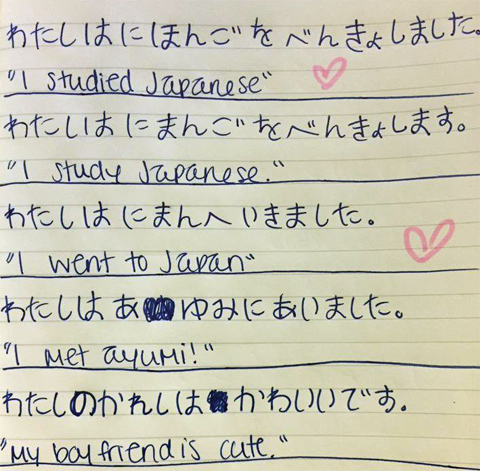 わたしはにほんごをべんきょしました。
"I studied Japanese"
わたしはにまんごをべんきょします。
"I study Japanese."
わたしはにまんへいきました。
"I went to Japan"
わたしはあゆみにあいました。
"I met ayumi!"
わたしのかれしはかわいいです。
"My boyfriend is cute."